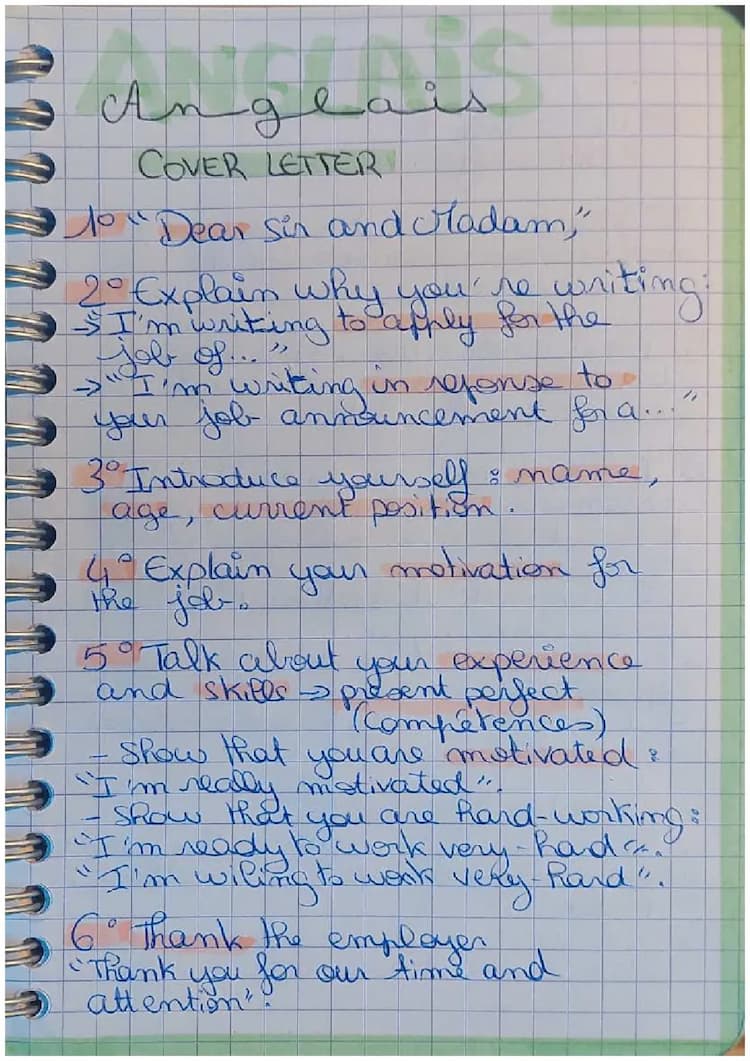 ANGLAIS
Anglais
COVER LETTER
1° "Dear Sir and Madam,"
2° Explain why you're writing:
→ I'm writing to apply for the
job of..."
→ "I'm writing in reponse to
your job announcement for a..."
3° Introduce yourself : name,
age, current position.
4° Explain your motivation for
the job.
5° Talk about your experience
and skills → present perfect
(compétences)
- Show that you are motivated :
"I'm really motivated".
- Show that you are hard-working:
"I'm ready to work very-had".
"I'm wiling to work very-hard".
6° Thank the employer
"Thank you for our time and
attention".